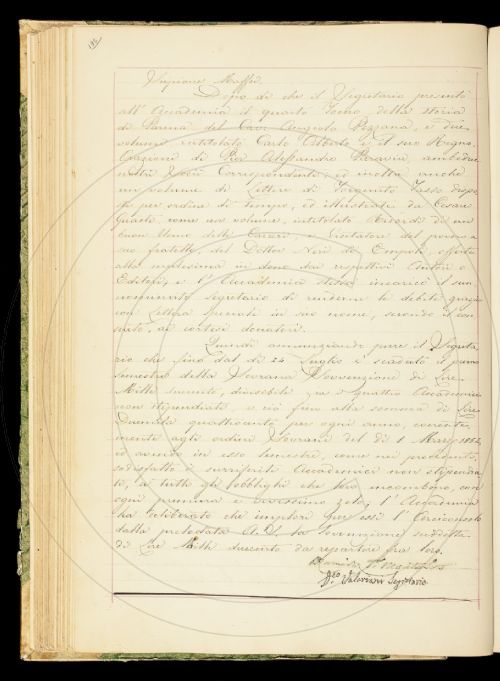 Scipione Maffei.
Dopo di che il Segretario presentò
all'Accademia il quarto Tomo della storia
di Parma del Cav. Angelo Pezzana, e due
volumi intitolati Carlo Alberto e il suo Regno,
Orazione di Pier Alessandro Paravia, ambidue
nostri Socii Corrispondenti; ed inoltre
un volume di Lettere di Torquato Tasso dispo
ste per ordine di tempo, ed illustrate da Cesare
Guasti, come un volume, intitolato Ricordi di un
buon Uomo delle Carceri, e Visitatore del povero e
suo fratello, del Dottor Neri di Empoli, offerta
alla medesima in dono dai rispettivi Autori o
Editori, e l'Accademia stessa incaricò il sun
nominato Segretario di renderne le debite grazie
con Lettere speciali in suo nome, secondo il con
sueto, ai cortesi donatori.
Quindi annunziando pure il Segreta
rio che fino dal dì 24 Luglio è scaduto il primo
semestre della Sovrana Sovvenzione di Lire
Mille duecento, divisibile fra i quattro Accademici
non stipendiati, e ciò fino alla somma di Lire
Duemila quattrocento per ogni anno, coerente
mente agli ordini Sovrani del dì 1 Marzo
ed avendo in esso Semestre, come nei precedenti,
sodisfatto i surriferiti Accademici non stipendia
ti, a tutti gli obblighi che loro incombono, con
ogni premura e vivissimo zelo; l'Accademia
ha deliberato che implori per essi l'Arciconsolo
dalla prelodata A. S. la Sovvenzione suddetta
di Lire Mille duecento da repartirsi fra loro.
Valeriani Segretario